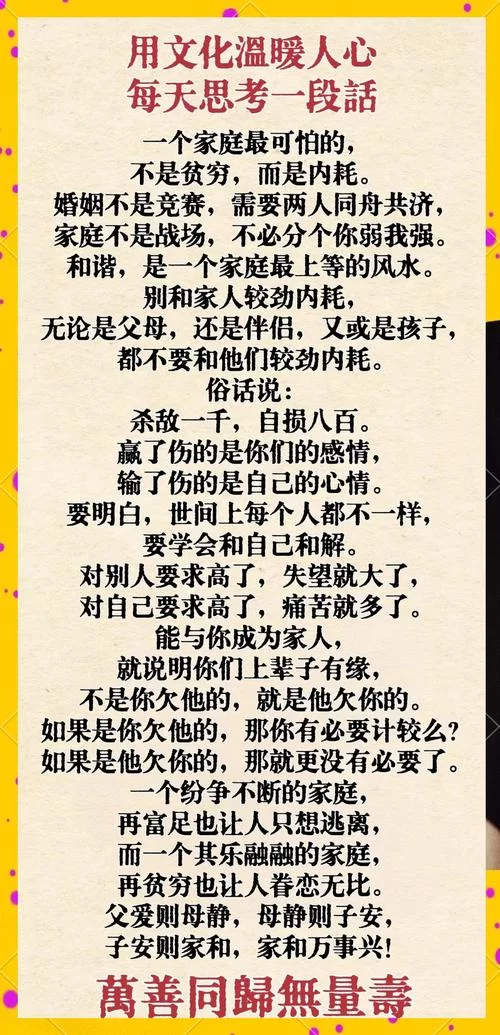 用文化溫暖人心
每天思考一段話
一个家庭最可怕的，
不是贫穷，而是内耗。
婚姻不是竞赛，需要两人同舟共济，
家庭不是战场，不必分个你弱我强。
和谐，是一个家庭最上等的风水。
别和家人较劲内耗，
无论是父母，还是伴侣，又或是孩子，
都不要和他们较劲内耗。
俗话说：
杀敌一千，自损八百。
赢了伤的是你们的感情，
输了伤的是自己的心情。
要明白，世间上每个人都不一样，
要学会和自己和解。
对别人要求高了，失望就大了，
对自己要求高了，痛苦就多了。
能与你成为家人，
就说明你们上辈子有缘，
不是你欠他的，就是他欠你的。
如果是你欠他的，那你有必要计较么？
如果是他欠你的，那就更没有必要了。
一个纷争不断的家庭，
再富足也让人只想逃离，
而一个其乐融融的家庭，
再贫穷也让人眷恋无比。
父爱则母静，母静则子安，
子安则家和，家和万事兴！
萬善同歸無量壽